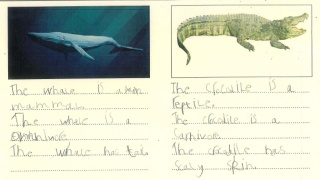 The whale is a
mammal.
The whale is a
The whale has tail
The crocodile is a
reptile.
The crocodile is a
carnivore
The crocodile has
scaly skin.